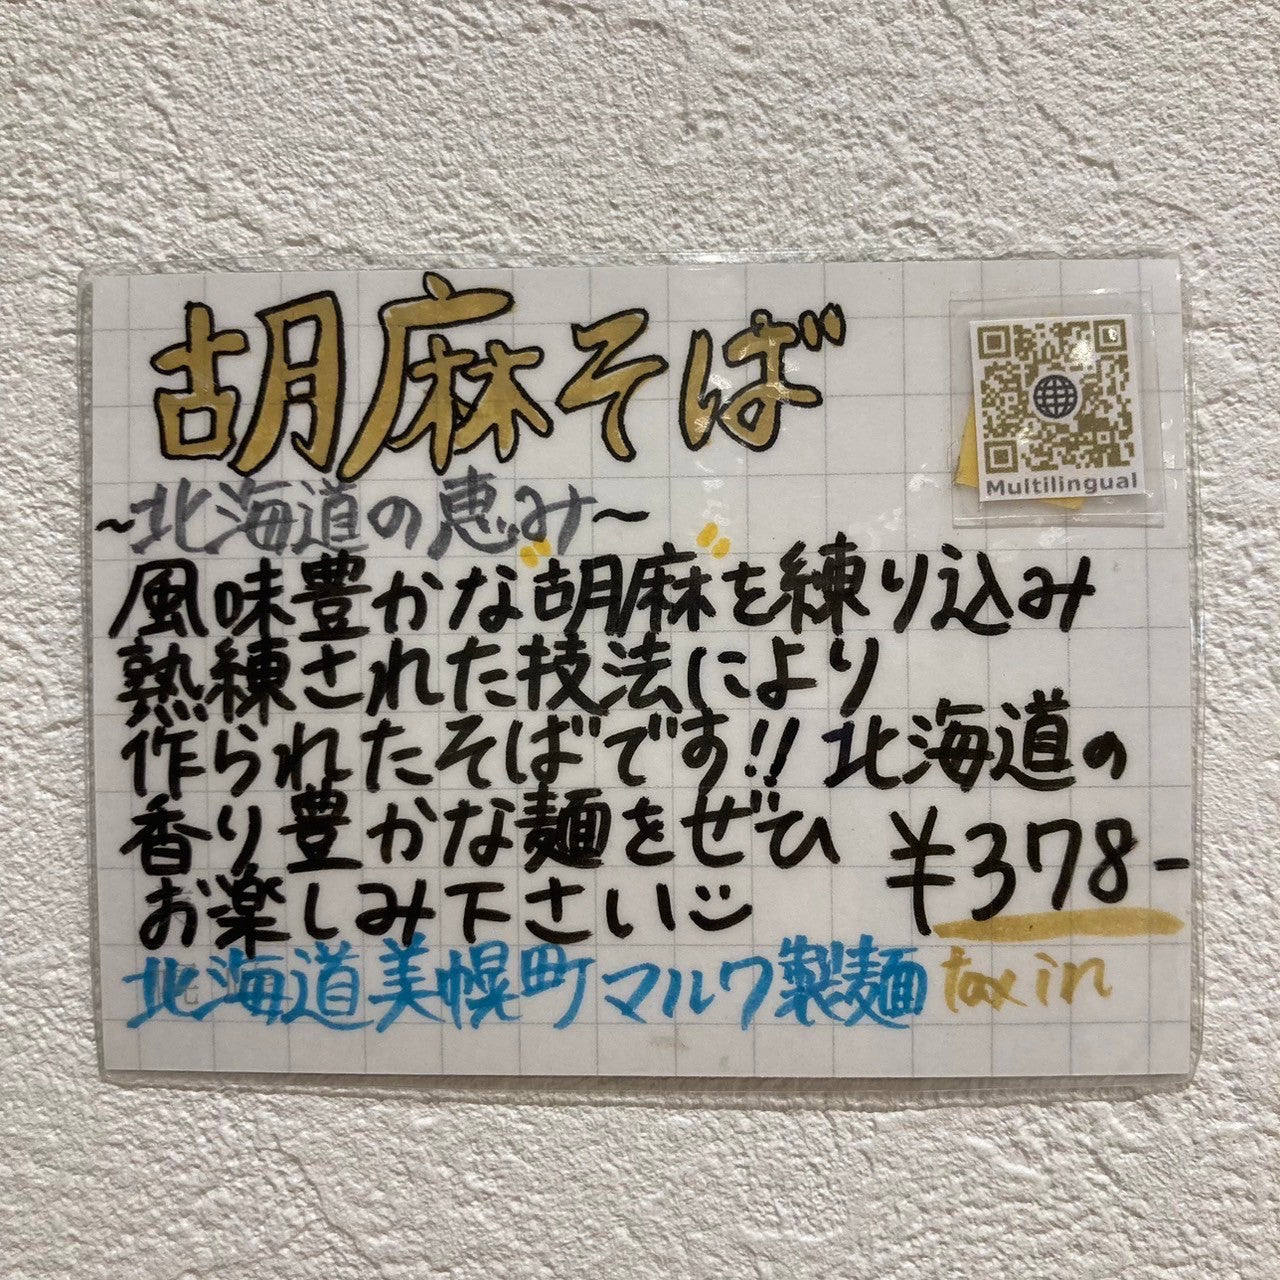 胡麻そば
Multilingual
~北海道の恵み~
風味豊かな胡麻を練り込み
熟練された技法により
作られたそばです!! 北海道の
香り豊かな麺をぜひ
お楽しみ下さい
¥378-
北海道美幌町マルワ製麺 tax in